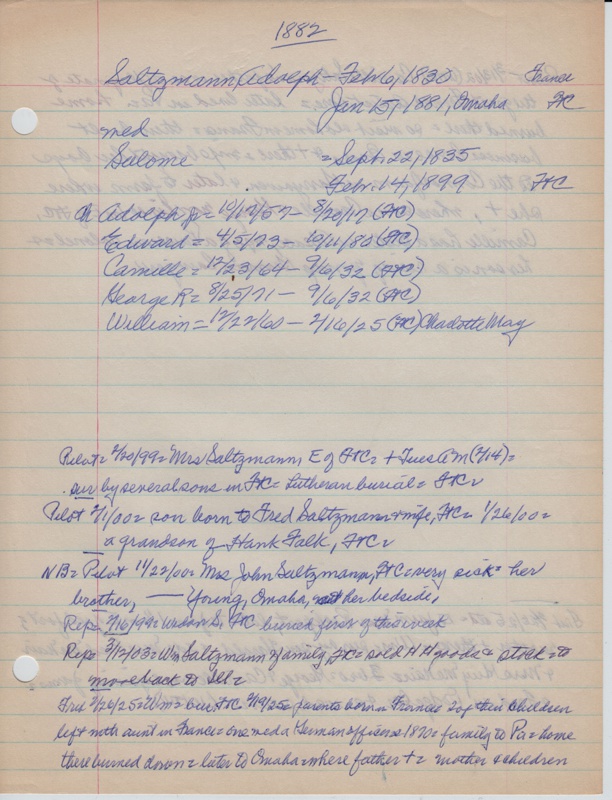 1882
Saltzmann, Adolph - Feb 6, 1830 France
Jan 15, 1881, Omaha FC
med
Salome = Sept. 22, 1835
Feb. 14, 1899 FC
Ch Adolph Jr = 10/17/57 - 8/20/17 (FC)
Edward = 4/5/73 - 10/11/80 (FC)
Camille = 12/23/64 - 9/6/32 (FC)
George R = 8/25/71 - 9/6/32 (FC)
William = 12/22/60 - 2/16/25 (FC) Charlotte May
Pilot = 2/20/99 = Mrs Saltzmann, E of FC = + Tues AM (2/14) =
sur by several sons in FC = Lutheran burial = FC =
Pilot 2/1/00 = son born to Fred Saltzmann + wife, FC = 1/26/00 =
a grandson of Hank Falk, FC =
NB = Pilot 11/22/00 = Mrs John Saltzmann, FC = very sick = her
brother, — Young, Omaha, at her bedside,
Rep = 2/16/99 = S, FC buried first of this week
Rep = 3/12/03 = Wm Saltzmann & family, FC = sold H H goods = stock = to
move back to Ill =
2/20/25 = Wm = FC 2/19/25 = parents born in France = 2 of their children
left with aunt in France = one med a German officer = 1870 = family to Pa = home
there burned down = later to Omaha = where father + = mother & children